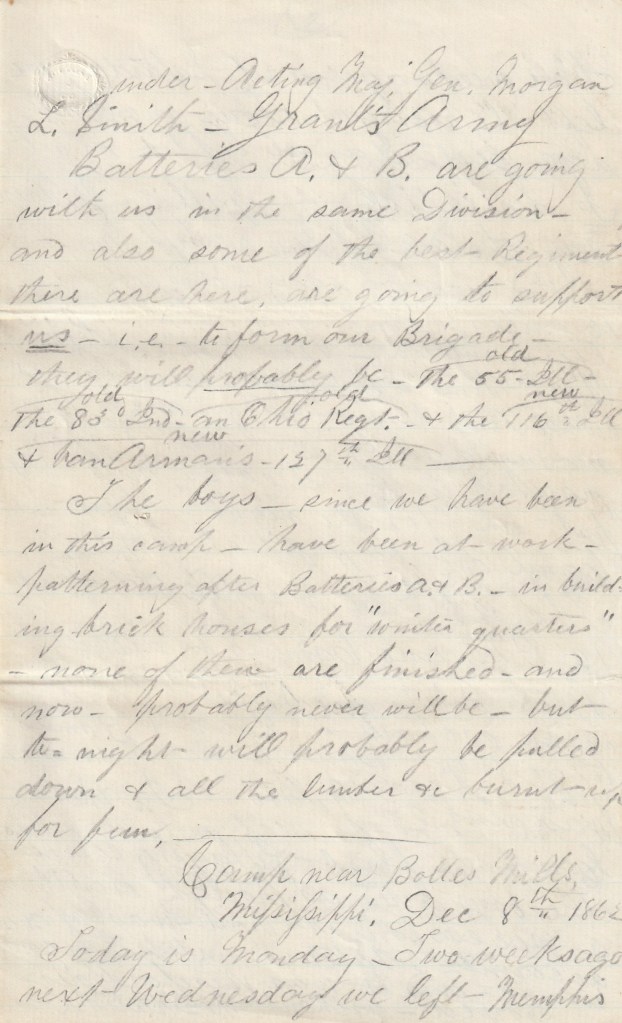 under - Acting Maj. Gen. Morgan
L. Smith - Grant's Army
Batteries A. & B. are going
with us in the same Division -
and also some of the best Regiments
there are here, are going to support
us - i.e. - to form our Brigade -
they will probably be - The 55 - Ill -
old
The 83d Ind - an Ohio Regt. - & the 116th Ill
old old new
& Van Arman's - 127th Ill
new
The boys - since we have been
in this camp - have been at work -
patterning after Batteries A. & B. - in build-
ing brick houses for "winter quarters"
- none of them are finished - and
now - probably never will be - but
to=night will probably be pulled
down & all the lumber &c burnt up
for fun.
Camp near Bolles Mills,
Mississippi, Dec 8th 1862
Today is Monday - Two weeks ago
next Wednesday we left - Memphis